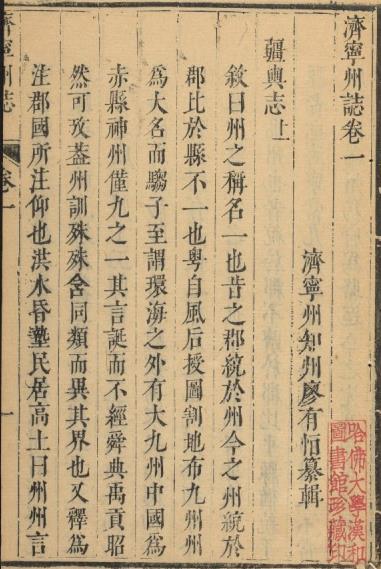 濟寧州誌卷一
濟寧州知州廖有恒纂輯
疆輿志上
敘曰州之稱名一也昔之郡統於州今之州統於
郡比於縣不一也粵自風后授圖割地布九州州
為大名而騶子至謂環海之外有大九州中國為
赤縣神州僅九之一其言誕而不經舜典禹貢昭
然可攷葢州訓殊殊含同類而異其界也又釋為
注郡國所注仰也洪水昏墊民居高土曰州州言
濟寧州誌
卷一
一
哈佛大學漢和
圖書館珍藏印